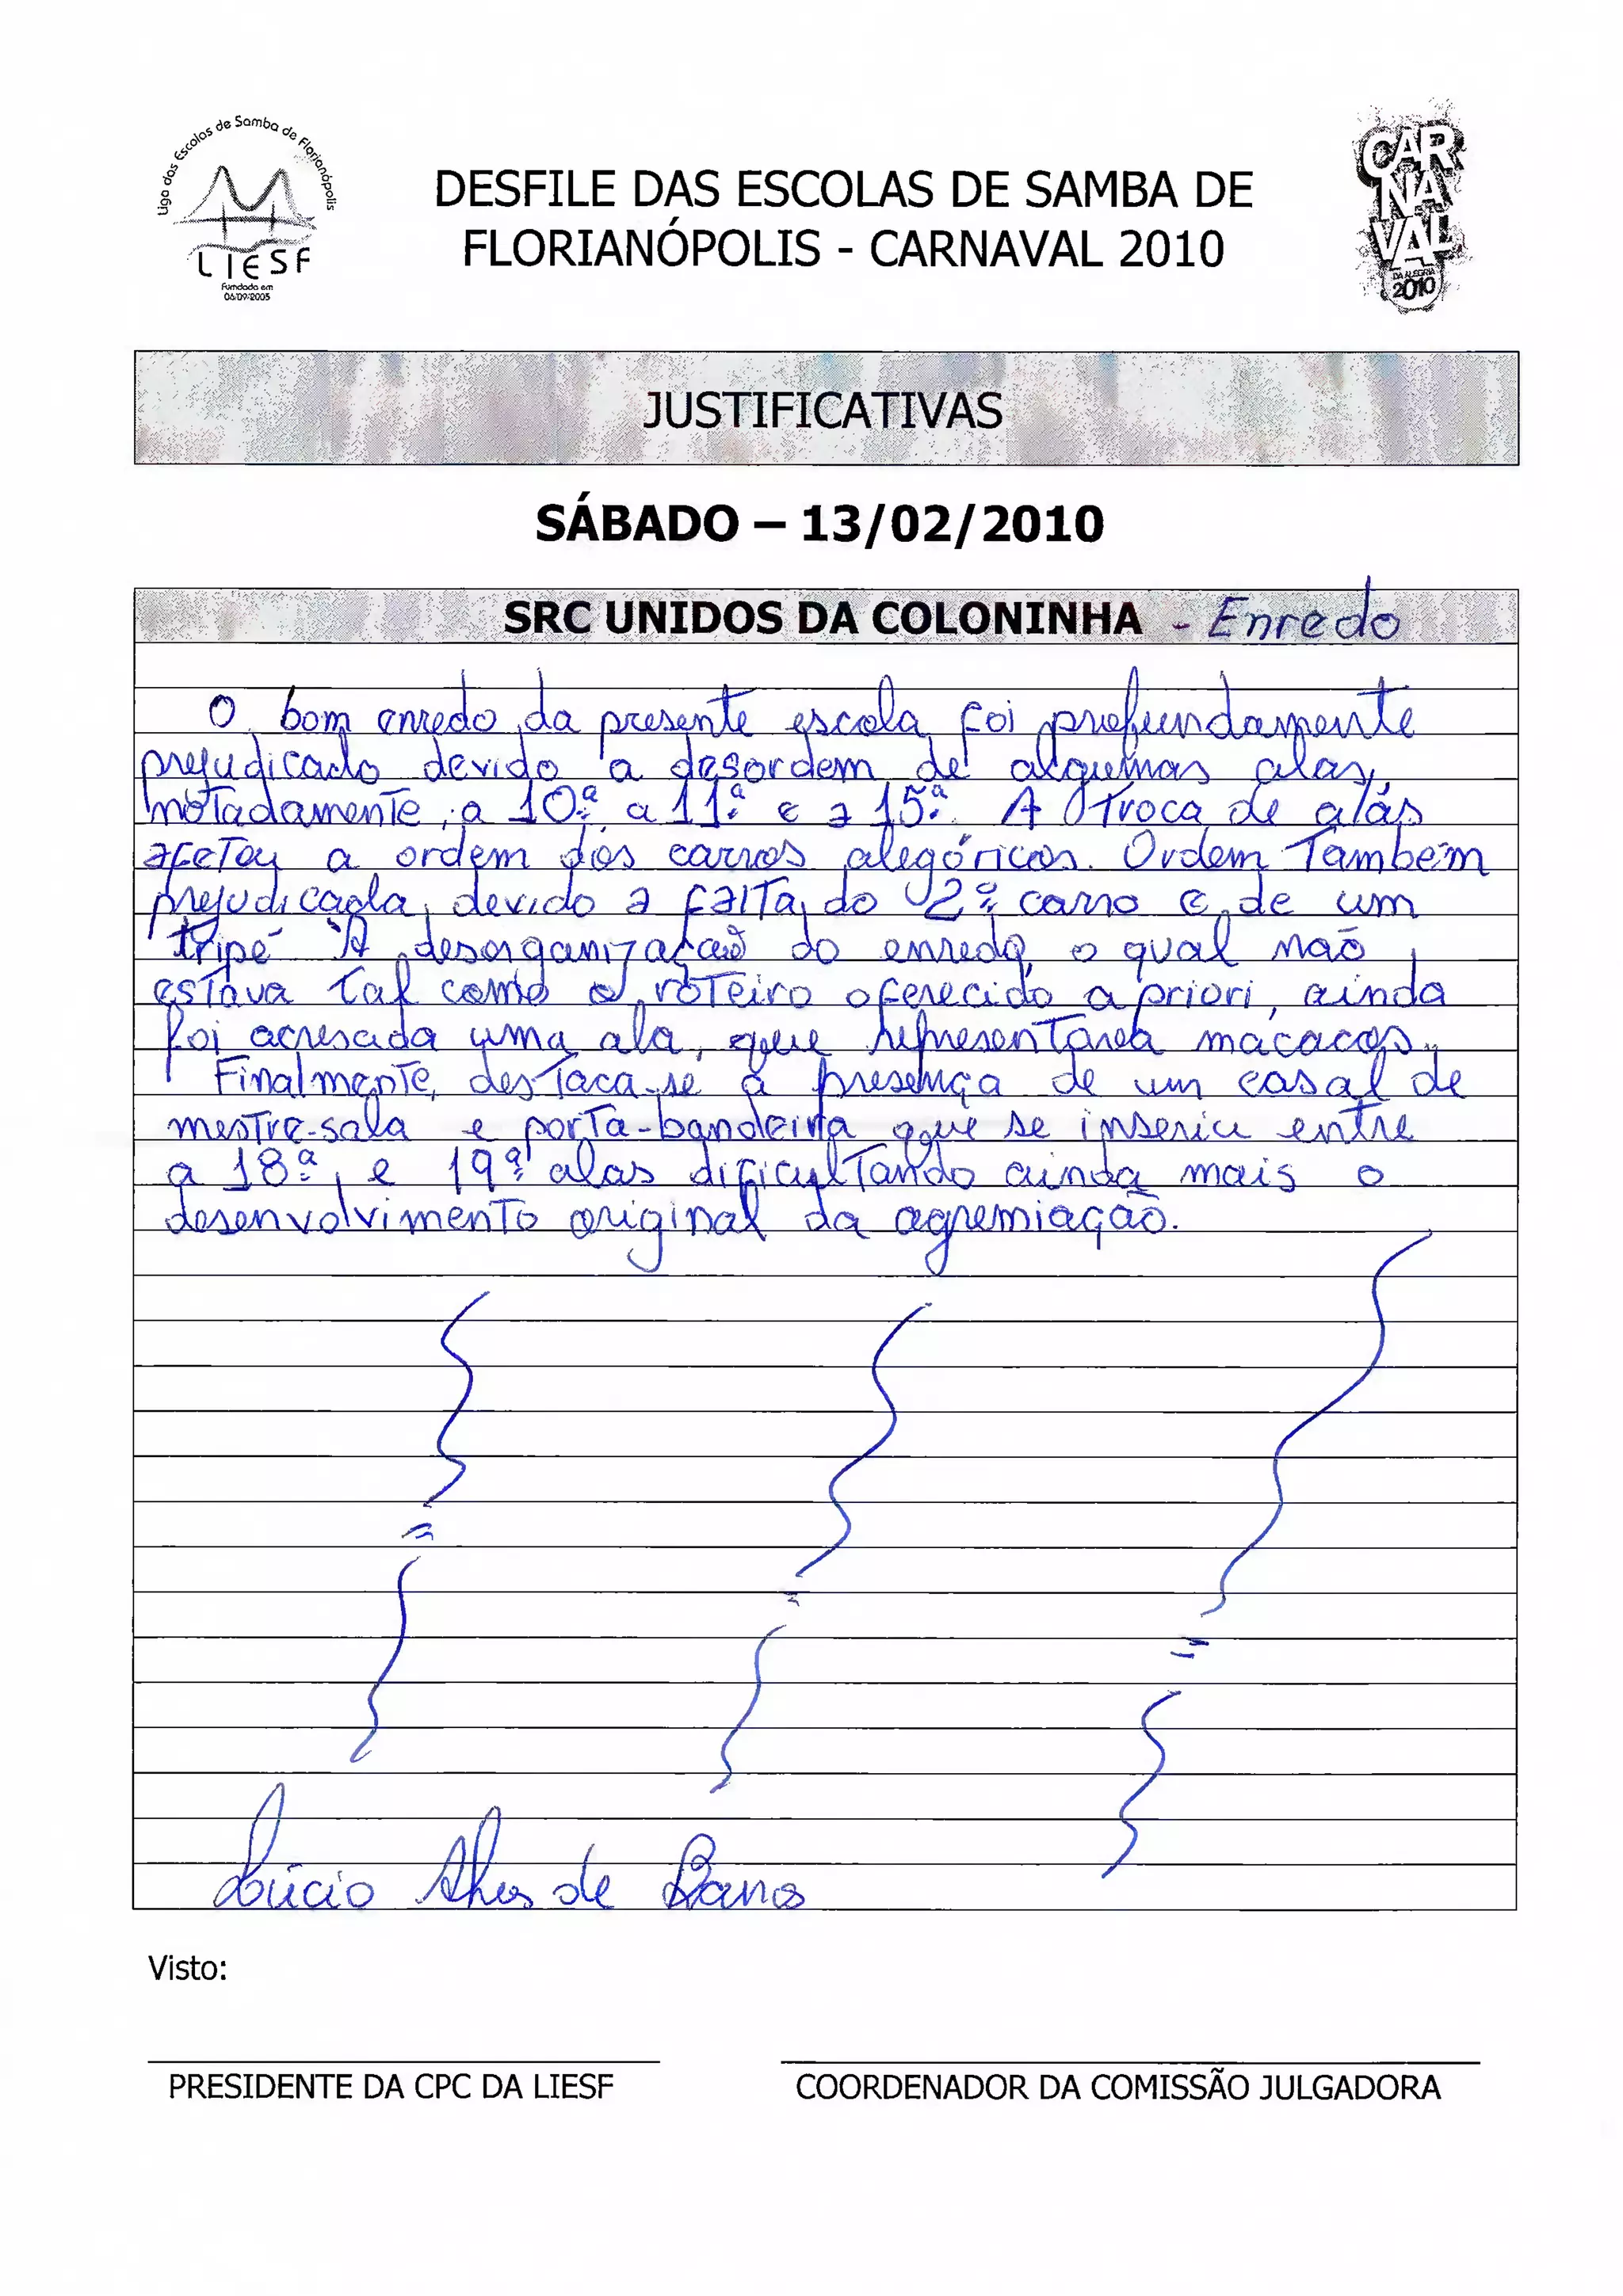 Liga das Escolas de Samba de Florianópolis
LIESF
Fundada em
06/09/2005
DESFILE DAS ESCOLAS DE SAMBA DE
FLORIANÓPOLIS - CARNAVAL 2010
CAR
NA
VAL
DA ALEGRIA
2010
JUSTIFICATIVAS
SÁBADO – 13/02/2010
SRC UNIDOS DA COLONINHA - Enredo
O bom enredo da presente escola foi profundamente
prejudicado devido a desordem de algumas alas,
notadamente, a 10ª a 11ª e a 15ª. A troca de alas
afetou a ordem dos carros alegóricos. Ordem também
prejudicada, devido a falta do 2º carro e de um
tripé. A desorganização do enredo, o qual não
estava tal como o roteiro oferecido a priori, ainda
foi acrescida uma ala, que representava macacos.
Finalmente, destaca-se a presença de um casal de
mestre-sala e porta-bandeira que se inseriu entre
a 18ª e 19ª alas dificultando ainda mais o
desenvolvimento original da agremiação.
Lúcio Alves de Barros
Visto:
PRESIDENTE DA CPC DA LIESF
COORDENADOR DA COMISSÃO JULGADORA